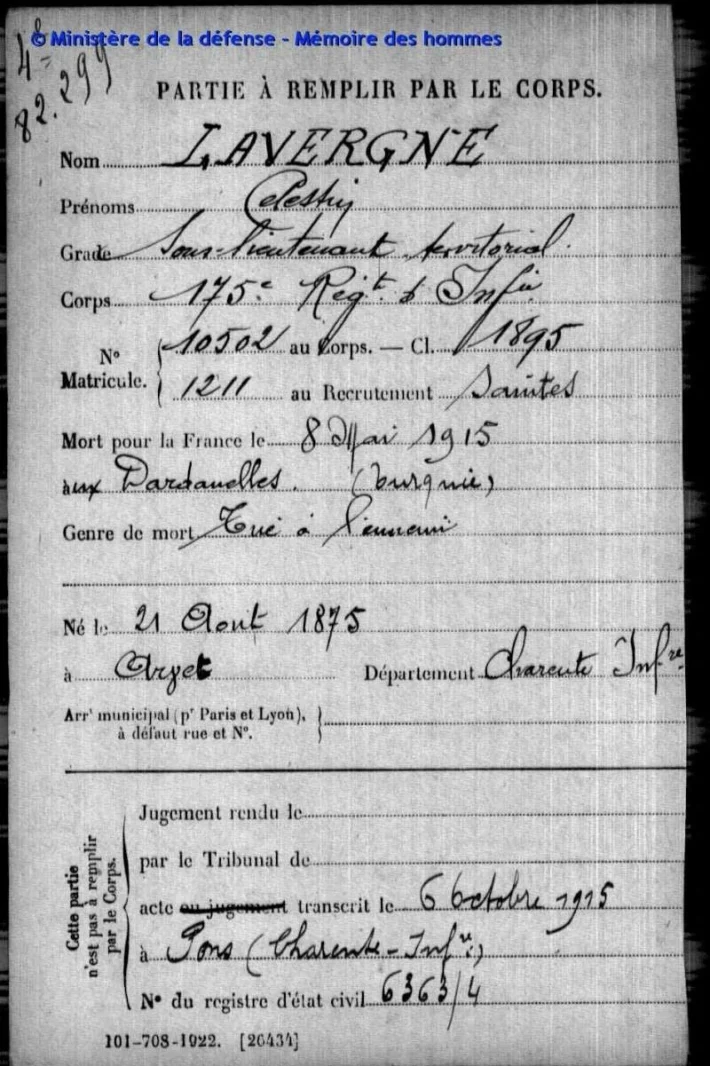 © Ministère de la défense - Mémoire des hommes
4e
82.299
PARTIE À REMPLIR PAR LE CORPS.
Nom LAVERGNE
Prénoms Celestin
Grade Sous-lieutenant territorial.
Corps 175e Régt. d'Infie
N° Matricule. 10502 au Corps. — Cl. 1895
1211 au Recrutement Saintes
Mort pour la France le 8 Mai 1915
aux Dardanelles. (Turquie)
Genre de mort Tué à l'ennemi
Né le 21 Aout 1875
à Département Charente Infre
Arrt municipal (pr Paris et Lyon),
à défaut rue et N°.
Cette partie
n'est pas à remplir
par le Corps.
Jugement rendu le
par le Tribunal de
acte ou jugement transcrit le 6 Octobre 1915
à Pons (Charente-Infre)
N° du registre d'état civil 6363/4
101-708-1922. [26434]